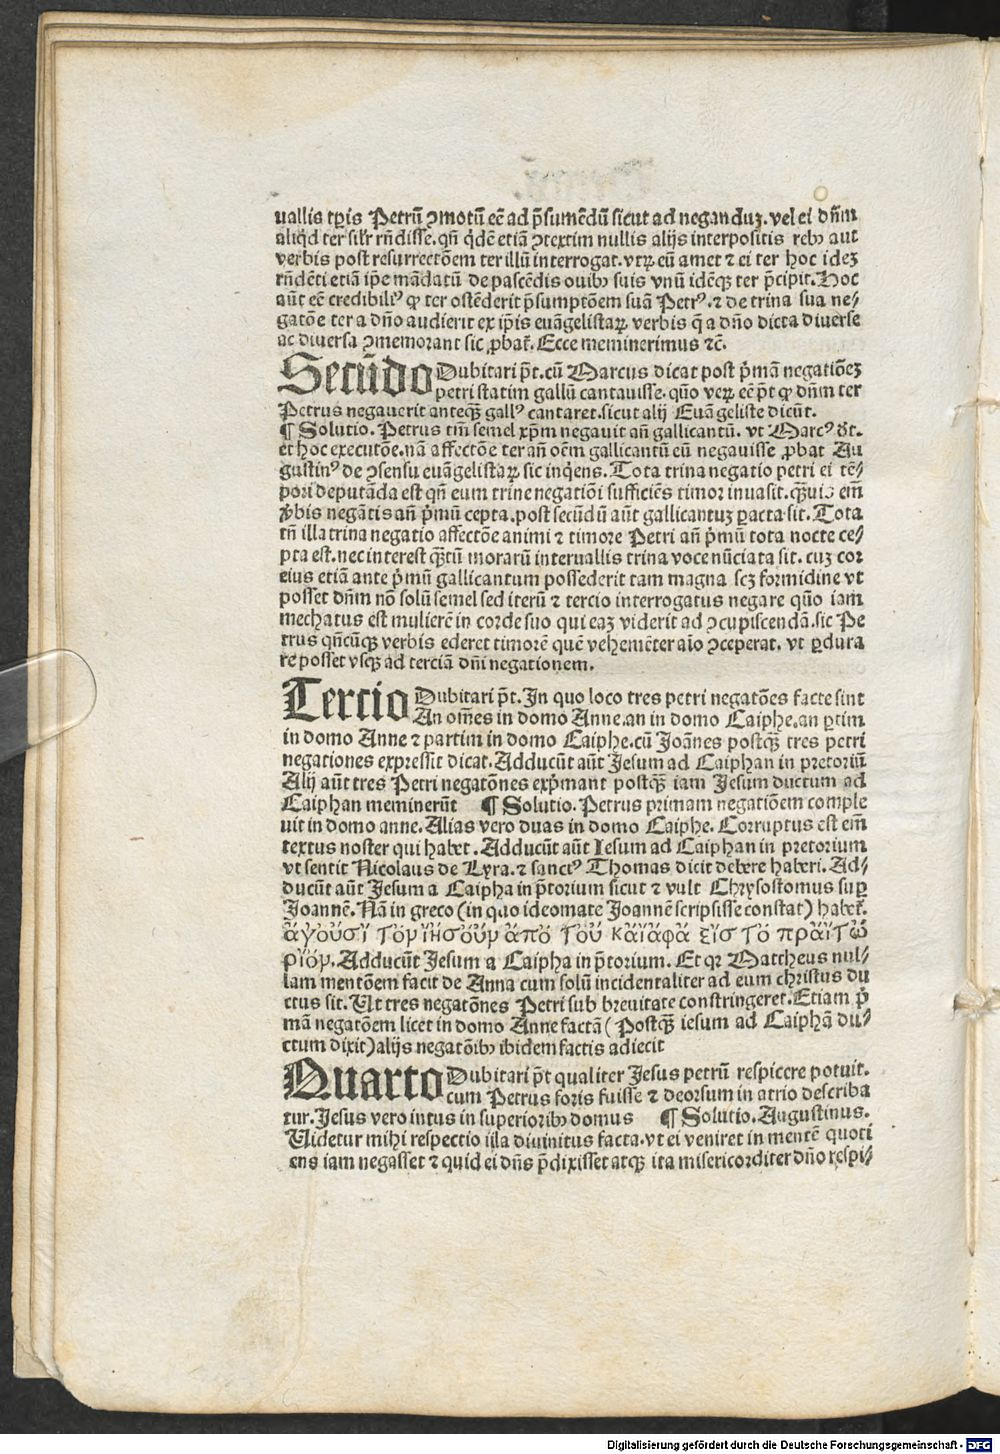 uallis tp̄is Petrū ꝯmotū eē ad p̄sumēdū sicut ad neganduꝫ. vel ei dn̄m
aliq̇d ter sil̄r rn̄disse. qn̄ q̇dē etiā ꝯtextim nullis alijs interpositis rebꝰ aut
verbis post resurrectōem ter illū interrogat. vtꝝ eū amet ⁊ ei ter hoc ideꝫ
rn̄dēti etiā ip̄e mādatū de pascēdis ouibꝰ suis vnū idēqꝫ ter p̄cipit. Hoc
aūt eē credibiliꝰ ꝙ ter ostēderit p̄sumptōem suā Petrꝰ. ⁊ de trina sua ne⸗
gatōe ter a dn̄o audierit ex ip̄is euāgelistaꝝ verbis q̄ a dn̄o dicta diuerse
ac diuersa ꝯmemorant sic ꝓbat̄. Ecce meminerimus ⁊c̄.
Secūdo Dubitari pōt. cū Marcus dicat post pͥmā negatiōeꝫ
petri statim gallū cantauisse. quō veꝝ eē pōt ꝙ dn̄m ter
Petrus negauerit anteqꝫ̄ gallꝰ cantaret. sicut alij Euāgeliste dicūt.
¶ Solutio. Petrus tm̄ semel xp̄m negauit an̄ gallicantū. vt Marcꝰ dt̄.
et hoc executōe. nā affectōe ter an̄ oēm gallicantū eū negauisse ꝓbat Au
gustinꝰ de ꝯsensu euāgelistaꝝ sic inq̇ens. Tota trina negatio petri ei tē⸗
pori deputāda est qn̄ eum trine negatiōi sufficiēs timor inuasit. qꝫ̄uis em̄
v̓bis negātis an̄ pͥmū cepta. post secūdū aūt gallicantuꝫ ꝑacta sit. Tota
tn̄ illa trina negatio affectōe animi ⁊ timore Petri an̄ pͥmū tota nocte ce⸗
pta est. nec interest qꝫ̄tū morarū interuallis trina voce nūciata sit. cuꝫ cor
eius etiā ante pͥmū gallicantum possederit tam magna scꝫ formidine vt
posset dn̄m nō solū semel sed iterū ⁊ tercio interrogatus negare quō iam
mechatus est mulierē in corde suo qui eaꝫ viderit ad ꝯcupiscendā. sic Pe
trus qn̄cūqꝫ verbis ederet timorē quē vehemēter aīo ꝯceperat. vt ꝑdura
re posset vsqꝫ ad terciā dn̄i negationem.
Tercio Dubitari pōt. In quo loco tres petri negatōes facte sint
An om̄es in domo Anne. an in domo Caiphe. an ꝑtim
in domo Anne ⁊ partim in domo Caiphe. cū Joānes postqꝫ̄ tres petri
negationes expressit dicat. Adducūt aūt Jesum ad Caiphan in pretoriū
Alij aūt tres Petri negatōnes expͥmant postqꝫ̄ iam Jesum ductum ad
Caiphan meminerūt ¶ Solutio. Petrus primam negatiōem comple
uit in domo anne. Alias vero duas in domo Caiphe. Corruptus est em̄
textus noster qui habet. Adducūt aūt Iesum ad Caiphan in pretorium
vt sentit Nicolaus de Lyra. ⁊ sanctꝰ Thomas dicit debere haberi. Ad⸗
ducūt aūt Jesum a Caipha in p̄torium sicut ⁊ vult Chrysostomus suꝑ
Joannē. Nā in greco (in quo ideomate Joannē scripsisse constat) habet̄.
ἀγουσἱ τὸν ἰησοῦν ἀπὸ τοῦ καἱἀφα εἰσ τὸ πραἱτὼ
ρἱον. Adducūt Jesum a Caipha in p̄torium. Et qꝛ Mattheus nul⸗
lam mentōem facit de Anna cum solū incidentaliter ad eum christus du
ctus sit. Ut tres negatōnes Petri sub breuitate constringeret. Etiam pͥ
mā negatōem licet in domo Anne factā (Postqꝫ̄ iesum ad Caiphā du⸗
ctum dixit) alijs negatōibꝰ ibidem factis adiecit
Quarto Dubitari pōt qualiter Jesus petrū respicere potuit.
cum Petrus foris fuisse ⁊ deorsum in atrio describa
tur. Jesus vero intus in superioribꝰ domus ¶ Solutio. Augustinus.
Uidetur mihi respectio illa diuinitus facta. vt ei veniret in mentē quoti
ens iam negasset ⁊ quid ei dn̄s p̄dixisset atqꝫ ita misericorditer dn̄o respi⸗
Digitalisierung gefördert durch die Deutsche Forschungsgemeinschaft - DFG